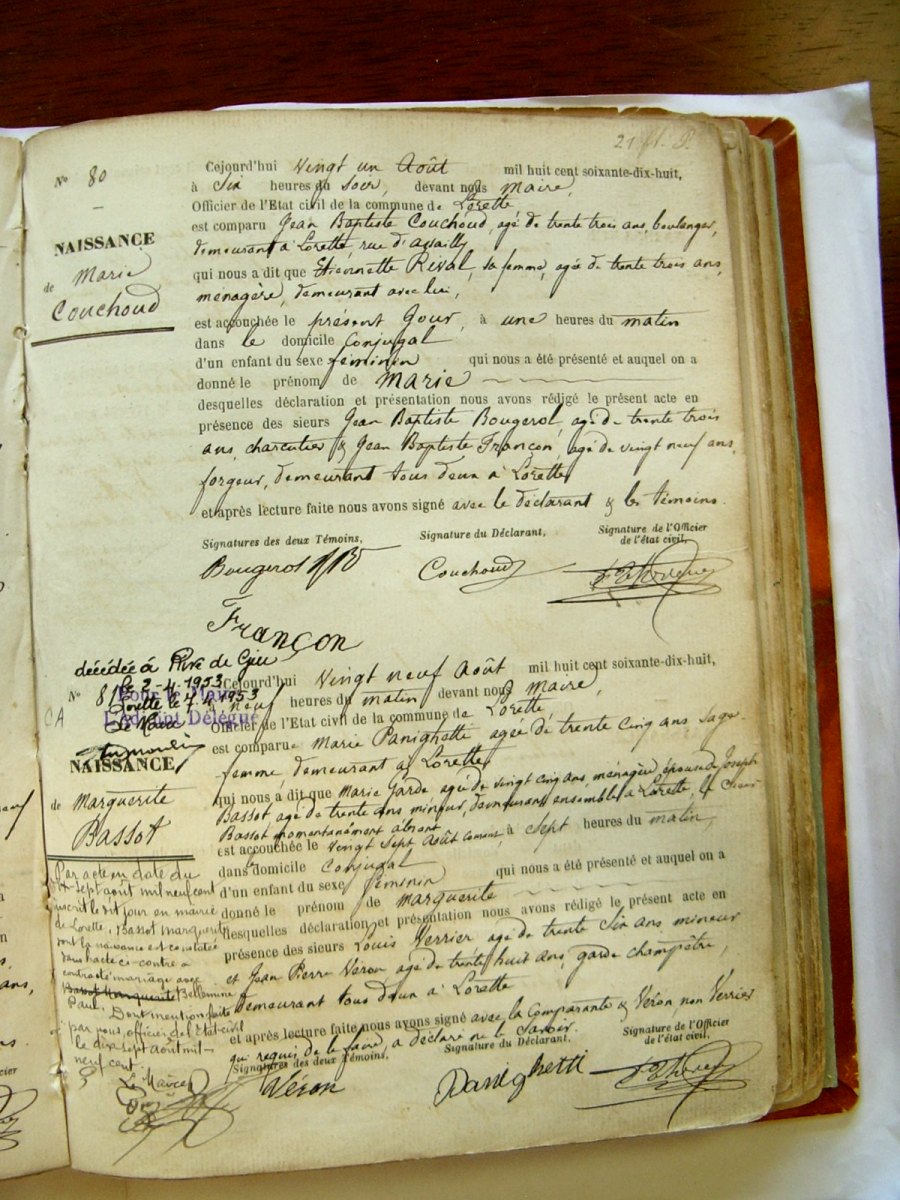 Nº 80
NAISSANCE
de Marie
Couchoud
Cejourd'hui vingt un Août mil huit cent soixante-dix-huit,
à Six heures du Soir, devant nous Maire,
Officier de l'Etat civil de la commune de Lorette
est comparu Jean Baptiste Couchoud, agé de trente trois ans, boulanger,
demeurant à Lorette, rue d'assailly
qui nous a dit que Etiennette Rival, sa femme, agée de trente trois ans,
ménagère, demeurant avec lui,
est accouchée le présent Jour, à une heures du matin
dans le domicile Conjugal
d'un enfant du sexe féminin qui nous a été présenté et auquel on a
donné le prénom de Marie
desquelles déclaration et présentation nous avons rédigé le présent acte en
présence des sieurs Jean Baptiste Bougerol, agé de trente trois
ans, charcutier & Jean Baptiste Françon, agé de vingt neuf ans,
forgeur, demeurant tous deux à Lorette
et après lecture faite nous avons signé avec le déclarant & les témoins.
Signatures des deux Témoins,
Signature du Déclarant,
Signature de l'Officier
de l'état civil,
Bougerol
Couchoud
Françon
décédée à Rive de Gier
le 2-4-1953
Lorette le 7.4.1953
Le Maire
Pour le Maire
L'Adjoint Délégué
Nº 81
CA
NAISSANCE
de Marguerite
Bassot
Cejourd'hui vingt neuf Août mil huit cent soixante-dix-huit,
à neuf heures du matin devant nous Maire,
Officier de l'Etat civil de la commune de Lorette
est comparue Marie Panighetti agée de trente Cinq ans Sage-
femme demeurant à Lorette
qui nous a dit que Marie Garde agée de vingt cinq ans, ménagère, épouse de Joseph
Bassot agé de trente ans mineur, demeurant ensemble à Lorette, le Sieur
Bassot momentanément absent
est accouchée le vingt Sept Août courant, à Sept heures du matin,
dans domicile Conjugal
d'un enfant du sexe féminin qui nous a été présenté et auquel on a
donné le prénom de marguerite
desquelles déclaration et présentation nous avons rédigé le présent acte en
présence des sieurs Louis Verrier agé de trente Six ans mineur
et Jean Pierre Véron agé de trente huit ans, garde champêtre,
demeurant tous deux à Lorette
et après lecture faite nous avons signé avec la Comparante & Véron, non Verrier
qui requis de le faire, a déclaré ne le Savoir.
Signatures des deux Témoins,
Signature du Déclarant,
Signature de l'Officier
de l'état civil,
Véron
Panighetti
Par acte en date du
dix sept août mil neuf cent
inscrit le dit jour en mairie
de Lorette, Bassot Marguerite
dont la naissance est constatée
dans l'acte ci-contre a
contracté mariage avec
Bassot Marguerite Bellemine
Paul. Dont mention faite
par nous, officier de l'Etat-civil
le dix sept août mil-
neuf cent.
Le Maire